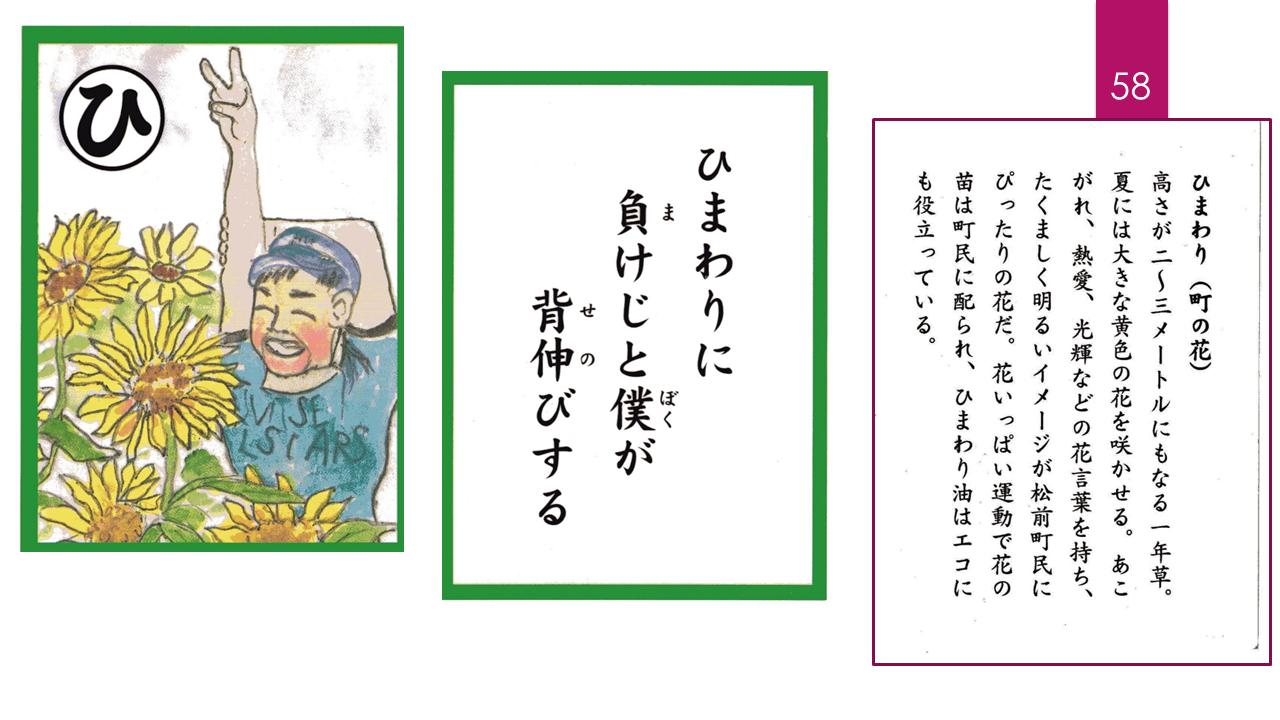 ひ
WISE
LSIARS
ひまわりに
負けじと僕が
ま
ぼく
背伸びする
せの
58
ひまわり（町の花）
高さが二～三メートルにもなる一年草。
夏には大きな黄色の花を咲かせる。あこ
がれ、熱愛、光輝などの花言葉を持ち、
たくましく明るいイメージが松前町民に
ぴったりの花だ。花いっぱい運動で花の
苗は町民に配られ、ひまわり油はエコに
も役立っている。